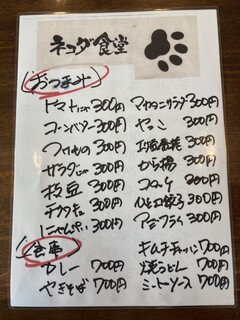 ネコダ食堂
おつまみ
トマト 300円
マカロニサラダ 300円
コーンバター 300円
やっこ 300円
つけもの 300円
300円
サラダ 300円
から揚 300円
枝豆 300円
300円
チクタ 300円
ひとロ餃子 300円
にゃんぺい 300円
アジフライ 300円
食事
キムチチャーハン 700円
カレー 700円
焼うどん 700円
やきそば 700円
ミートソース 700円